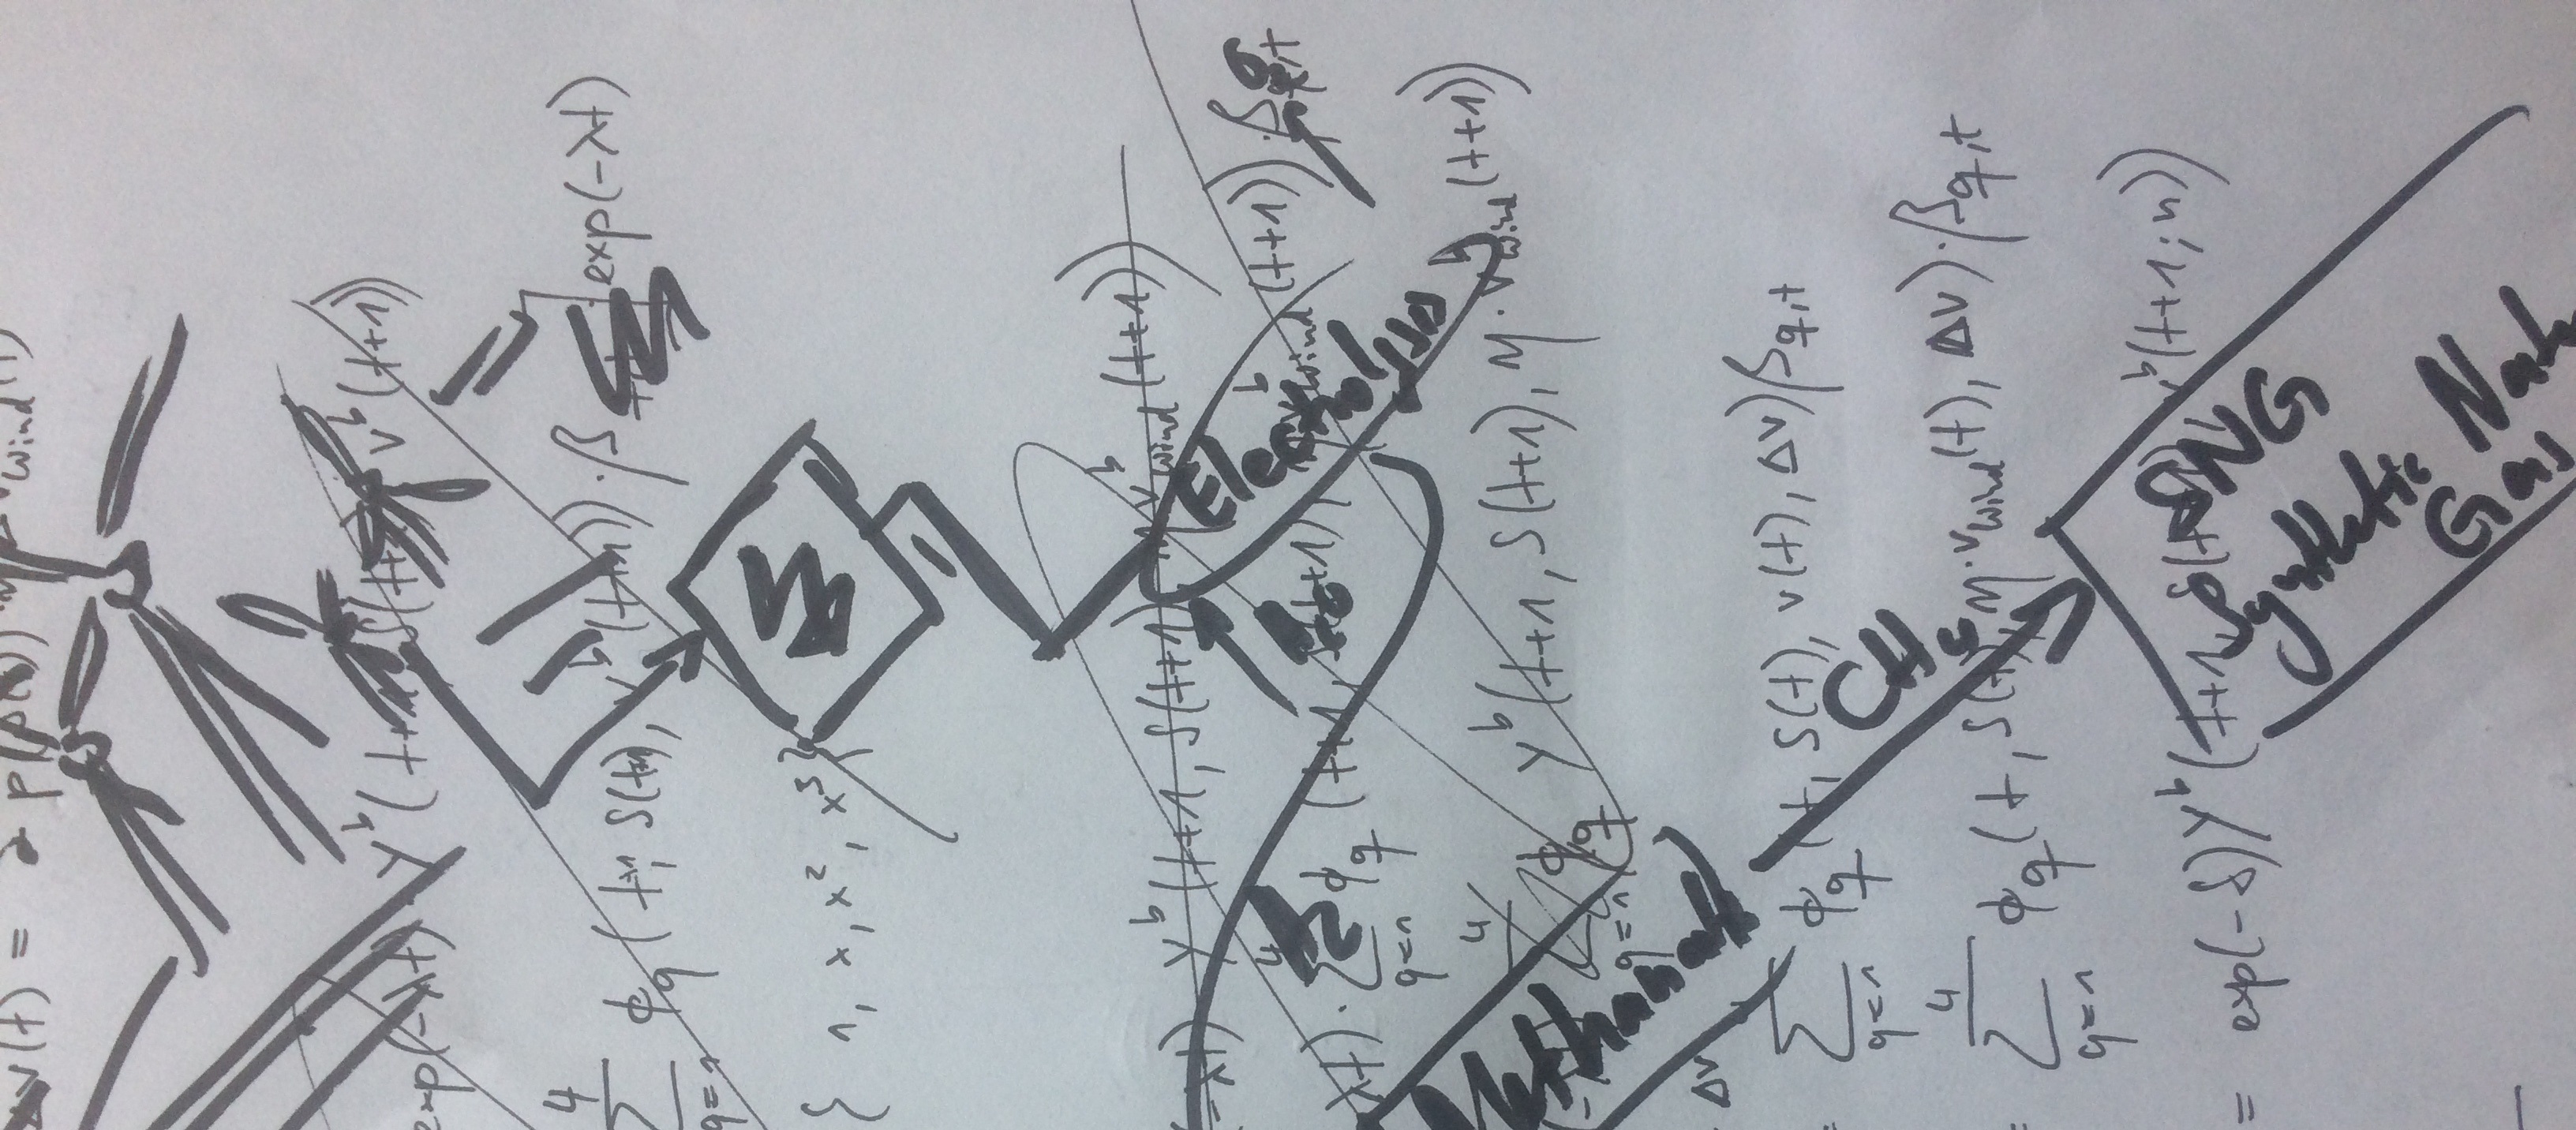 v(t) = 2 p(p(t)) wind(t)
exp(-λt) Y^b(t+1, S(t+1), v^b(t+1))
=
4
∑ ϕ_q(t+1, S(t+1), v^b(t+1)) · β exp(-λt)
q=1
{ 1, x, x², x³ }
-λt) Y^b(t+1, S(t+1), η v^b_wind(t+1))
Electrolysis
λt) · ∑ ϕ_q (t+1, S(t+1), v^b_wind(t+1)) · β_q,t
q=1
4
∑ ϕ_q Y^b(t+1, S(t+1), η · v^b_wind(t+1))
q=1
Δv
∑ ϕ_q(t, S(t), v(t), Δv) β_q,t
q=1
CH₄
4
= ∑ ϕ_q(t, S(t), η · v_wind(t), Δv) · β_q,t
q=1
= exp(-δ) Y^b(t+1, S(t+1), v^b(t+1; n))
SNG
Synthetic Nat
Gas